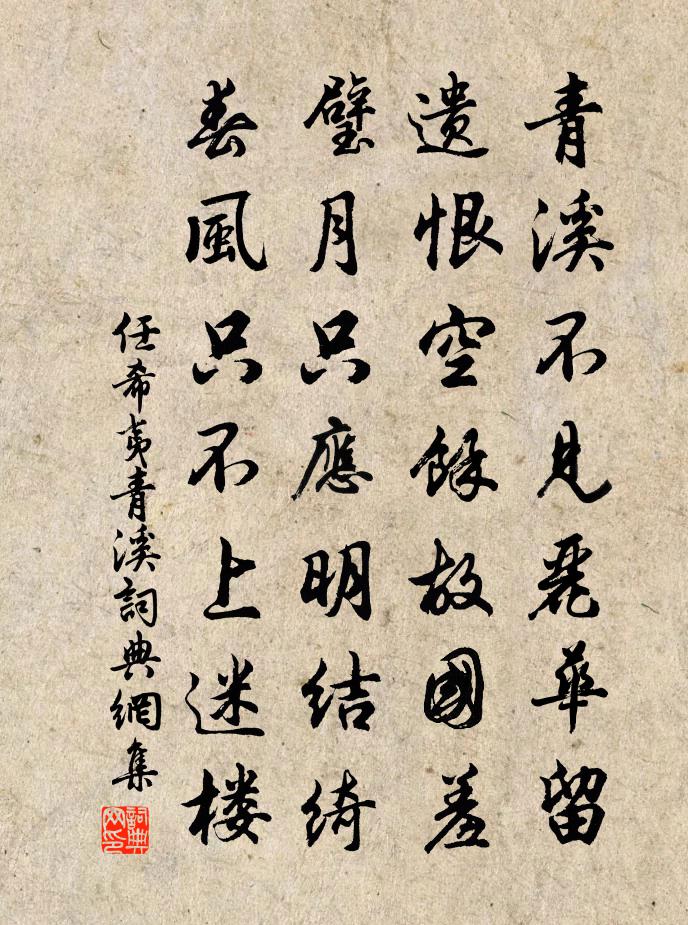 青溪不見麗華留
遺恨空餘故國羞
璧月只應明結綺
春風只不上迷楼
任希夷青溪詞典網集
詞典网印